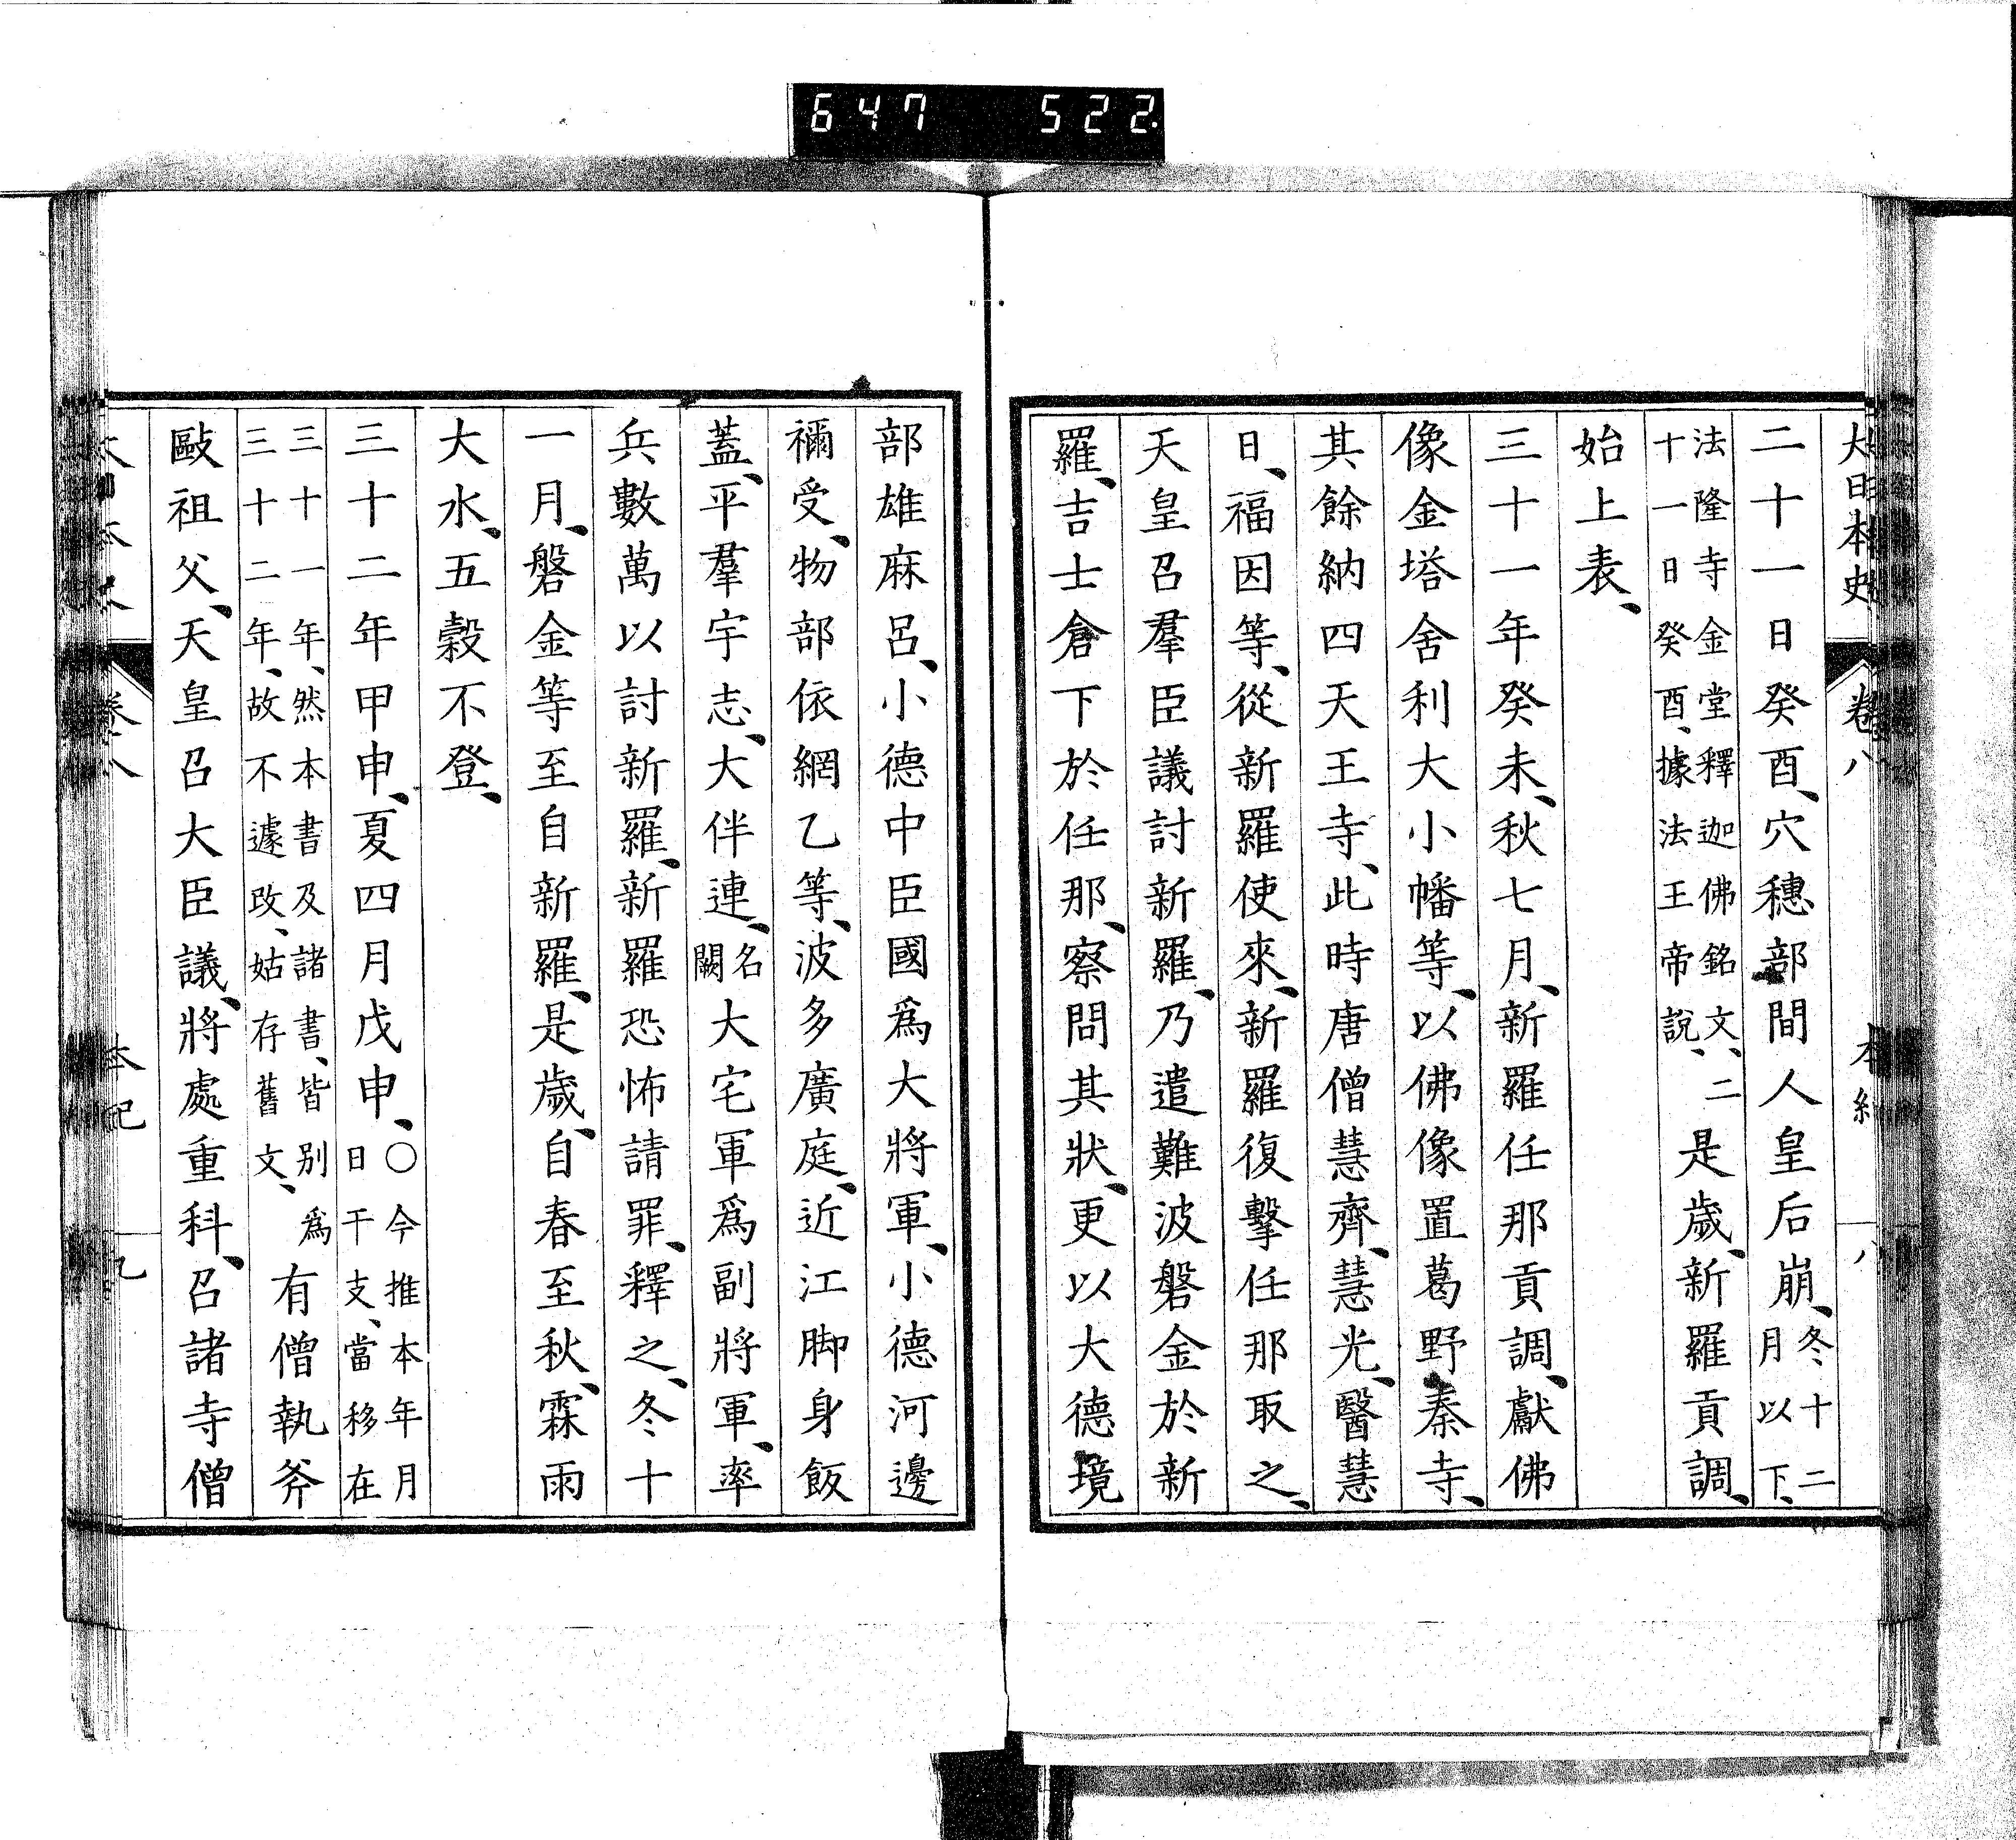 647 522
大日本史 卷八 本紀 八
二十一日癸酉、穴穗部間人皇后崩、冬十二月以下、
法隆寺金堂釋迦佛銘文、二十一日癸酉、據法王帝說、是歲、新羅貢調、
始上表、
三十一年癸未、秋七月、新羅任那貢調、獻佛
像金塔舍利大小幡等、以佛像置葛野秦寺、
其餘納四天王寺、此時唐僧慧齊、慧光、醫慧
日、福因等、從新羅使來、新羅復擊任那取之、
天皇召羣臣議討新羅、乃遣難波磐金於新
羅、吉士倉下於任那、察問其狀、更以大德境
部雄麻呂、小德中臣國爲大將軍、小德河邊
禰受、物部依網乙等、波多廣庭、近江脚身飯
蓋、平羣宇志、大伴連、名闕大宅軍爲副將軍、率
兵數萬以討新羅、新羅恐怖請罪、釋之、冬十
一月、磐金等至自新羅、是歲、自春至秋、霖雨
大水、五穀不登、
三十二年甲申、夏四月戊申、○今推本年月日干支、當移在
三十一年、然本書及諸書、皆別爲三十二年、故不遽改、姑存舊文、有僧執斧
毆祖父、天皇召大臣議、將處重科、召諸寺僧
大日本史 卷八 本紀 九